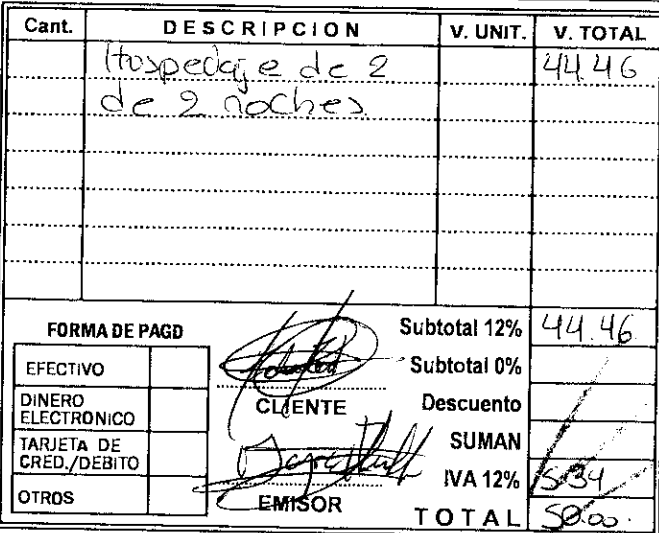 Cant. DESCRIPCION V. UNIT. V. TOTAL
Hospedaje de 2 44.46
de 2 noches
FORMA DE PAGO
EFECTIVO
DINERO
ELECTRONICO
TARJETA DE
CRED./DEBITO
OTROS
CLIENTE
EMISOR
Subtotal 12% 44.46
Subtotal 0%
Descuento
SUMAN
IVA 12% 5.34
TOTAL 50.00.